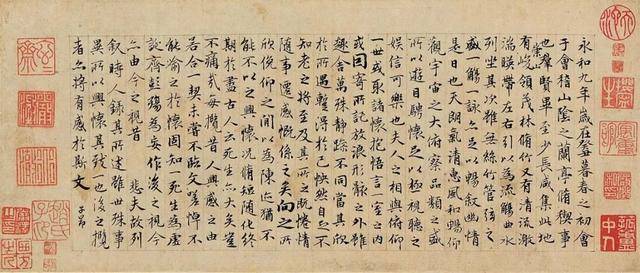 永和九年歲在癸丑暮春之初會
于會稽山陰之蘭亭脩禊事
也羣賢畢至少長咸集此地
有崇峻領茂林脩竹又有清流激
湍暎帶左右引以為流觴曲水
列坐其次雖無絲竹管弦之
盛一觴一詠亦足以暢敘幽情
是日也天朗氣清惠風和暢仰
觀宇宙之大俯察品類之盛
所以遊目騁懷足以極視聽之
娛信可樂也夫人之相與俯仰
一世或取諸懷抱悟言一室之內
或因寄所託放浪形骸之外雖
趣舍萬殊靜躁不同當其欣
於所遇蹔得於己怏然自足不
知老之將至及其所之既惓情
隨事遷感慨係之矣向之所
欣俛仰之間以為陳迹猶不
能不以之興懷況脩短隨化終
期於盡古人云死生亦大矣豈
不痛哉每攬昔人興感之由
若合一契未嘗不臨文嗟悼不
能喻之於懷固知一死生為虛
誕齊彭殤為妄作後之視今
亦由今之視昔 悲夫故列
敘時人錄其所述雖世殊事
異所以興懷其致一也後之攬
者亦將有感於斯文 子昂